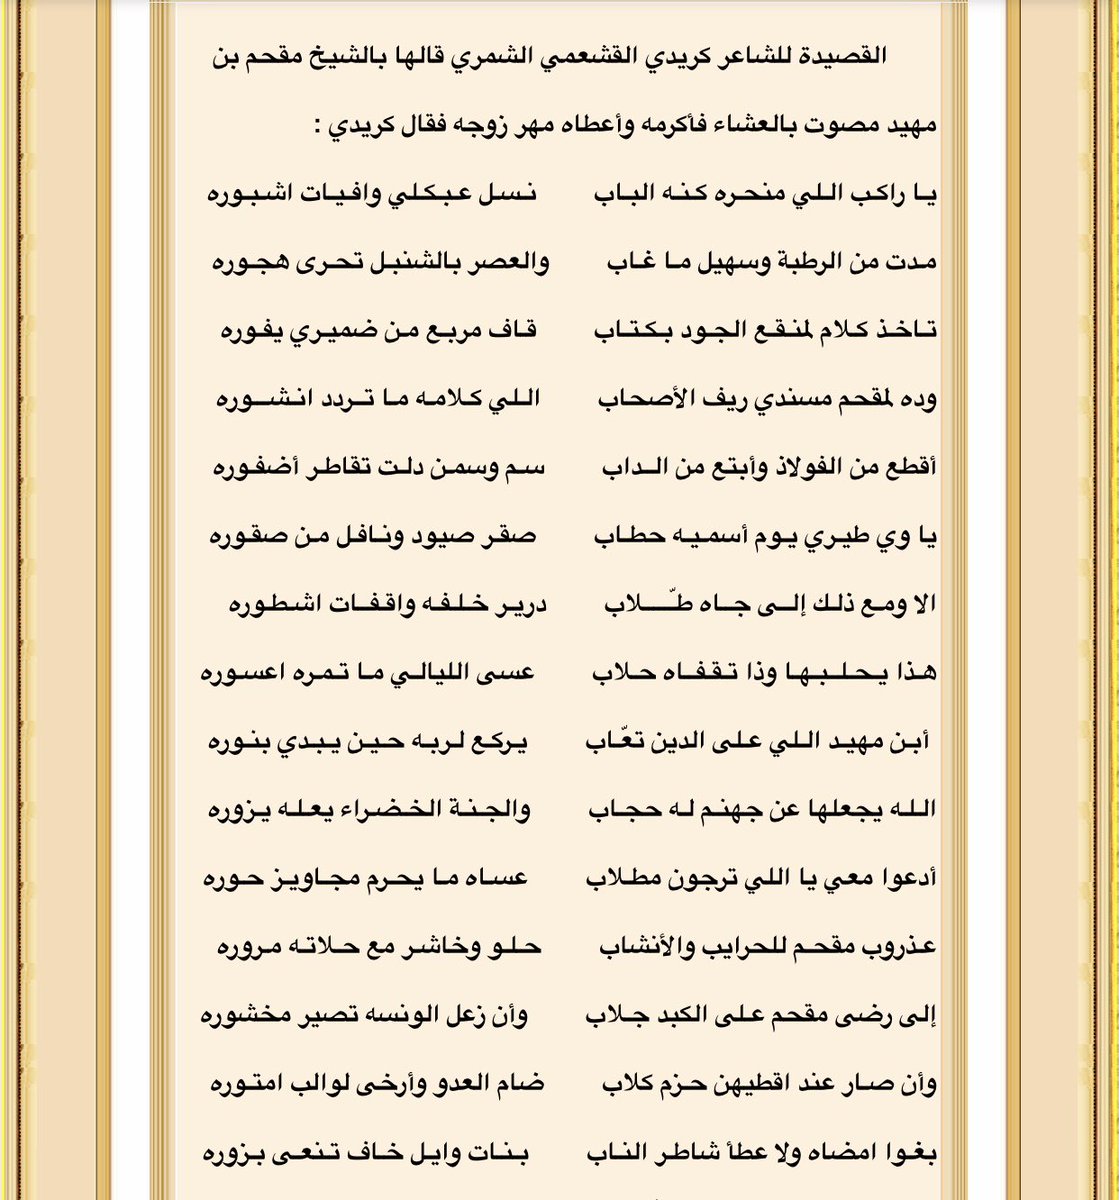 القصيدة للشاعر كريدي القشعمي الشمري قالها بالشيخ مقحم بن
مهيد مصوت بالعشاء فأكرمه وأعطاه مهر زوجه فقال كريدي :
يا راكب اللي منحره كنه الباب نسل عبكلي وافيات اشبوره
مدت من الرطبة وسهيل ما غاب والعصر بالشنبل تحرى هجوره
تاخذ كلام لمنقع الجود بكتاب قاف مربع من ضميري يفوره
وده لمقحم مسندي ريف الأصحاب اللي كلامه ما تردد انشوره
أقطع من الفولاذ وأبتع من الداب سم وسمن دلت تقاطر أضفوره
يا وي طيري يوم أسميه حطاب صقر صيود ونافل من صقوره
الا ومع ذلك إلى جاه طلّاب درير خلفه واقفات اشطوره
هذا يحلبها وذا تقفاه حلاب عسى الليالي ما تمره اعسوره
أبن مهيد اللي على الدين تعّاب يركع لربه حين يبدي بنوره
الله يجعلها عن جهنم له حجاب والجنة الخضراء يعله يزوره
أدعوا معي يا اللي ترجون مطلاب عساه ما يحرم مجاويز حوره
عذروب مقحم للحرايب والأنشاب حلو وخاشر مع حلاته مروره
إلى رضى مقحم على الكبد جلاب وأن زعل الونسه تصير مخشوره
وأن صار عند اقطيهن حزم كلاب ضام العدو وأرخى لوالب امتوره
بغوا امضاه ولا عطأ شاطر الناب بنات وايل خاف تنعى بزوره